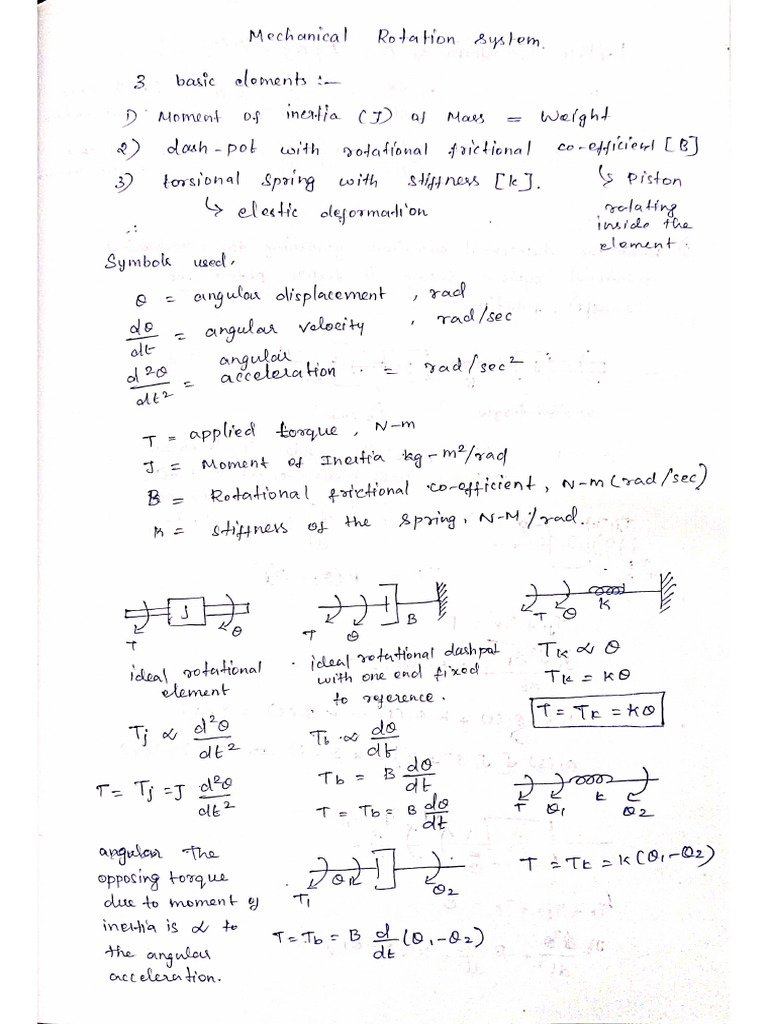 Mechanical Rotation System.
3 basic elements :-
1) Moment of inertia (J) of Mass = Weight
2) dash-pot with rotational frictional co-efficient [B]
↳ Piston
rotating
inside the
element.
3) torsional Spring with stiffness [k].
↳ elastic deformation
Symbols used.
θ = angular displacement , rad
dθ/dt = angular velocity , rad/sec
d²θ/dt² = angular acceleration = rad/sec²
T = applied torque , N-m
J = Moment of Inertia kg-m²/rad
B = Rotational frictional co-efficient, N-m (rad/sec)
K = stiffness of the Spring, N-M/rad.
T J θ
ideal rotational
element
Tj ∝ d²θ/dt²
T = Tj = J d²θ/dt²
angular The
opposing torque
due to moment of
inertia is ∝ to
the angular
acceleration.
T θ B
ideal rotational dashpot
with one end fixed
to reference.
Tb ∝ dθ/dt
Tb = B dθ/dt
T = Tb = B dθ/dt
T1 θ1 θ2
T = Tb = B d/dt (θ1-θ2)
T θ K
TK ∝ θ
TK = Kθ
T = TK = Kθ
T θ1 k θ2
T = Tk = K(θ1-θ2)